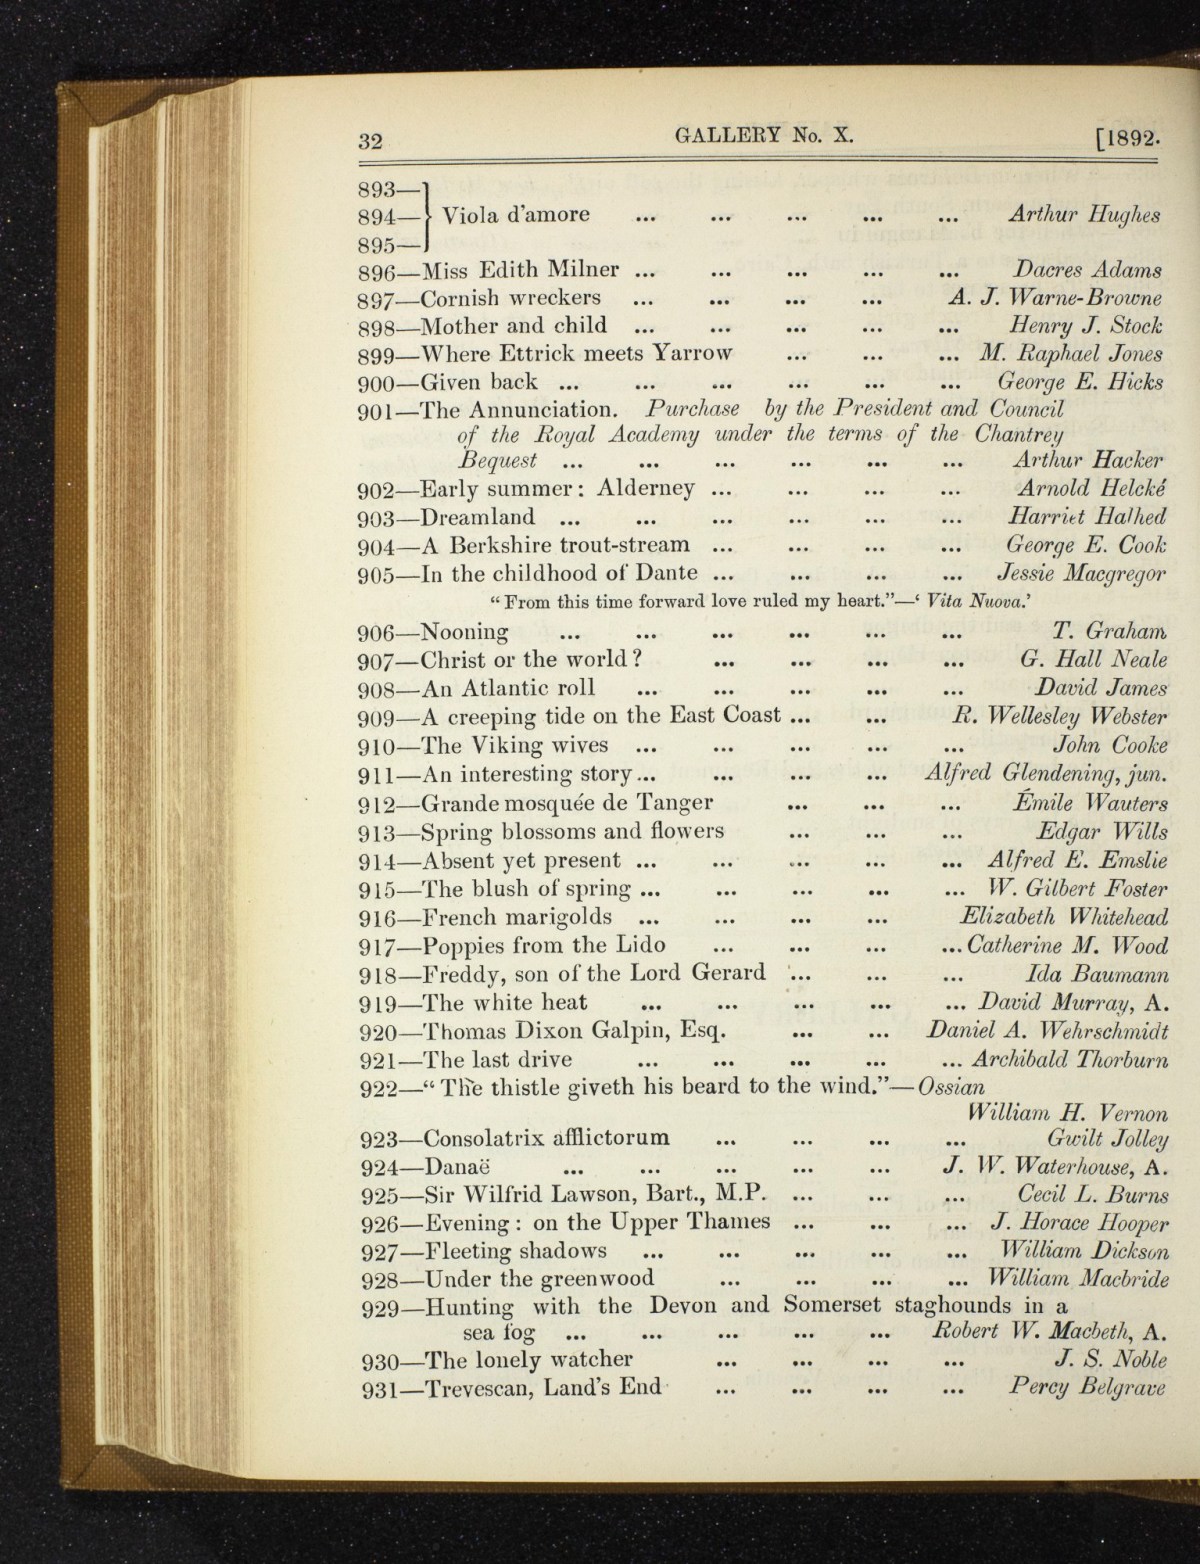 32 GALLERY No. X. [1892.
893—
894— Viola d'amore ... ... ... ... ... Arthur Hughes
895—
896—Miss Edith Milner ... ... ... ... ... Dacres Adams
897—Cornish wreckers ... ... ... ... A. J. Warne-Browne
898—Mother and child ... ... ... ... ... Henry J. Stock
899—Where Ettrick meets Yarrow ... ... ... M. Raphael Jones
900—Given back ... ... ... ... ... ... George E. Hicks
901—The Annunciation. Purchase by the President and Council
of the Royal Academy under the terms of the Chantrey
Bequest ... ... ... ... ... ... Arthur Hacker
902—Early summer: Alderney ... ... ... ... Arnold Helcké
903—Dreamland ... ... ... ... ... ... Harriet Halhed
904—A Berkshire trout-stream ... ... ... ... George E. Cook
905—In the childhood of Dante ... ... ... ... Jessie Macgregor
"From this time forward love ruled my heart."—'Vita Nuova.'
906—Nooning ... ... ... ... ... ... T. Graham
907—Christ or the world? ... ... ... ... G. Hall Neale
908—An Atlantic roll ... ... ... ... ... David James
909—A creeping tide on the East Coast ... ... R. Wellesley Webster
910—The Viking wives ... ... ... ... ... John Cooke
911—An interesting story ... ... ... ... Alfred Glendening, jun.
912—Grande mosquée de Tanger ... ... ... Émile Wauters
913—Spring blossoms and flowers ... ... ... Edgar Wills
914—Absent yet present ... ... ... ... ... Alfred E. Emslie
915—The blush of spring ... ... ... ... ... W. Gilbert Foster
916—French marigolds ... ... ... ... Elizabeth Whitehead
917—Poppies from the Lido ... ... ... ... Catherine M. Wood
918—Freddy, son of the Lord Gerard ... ... ... Ida Baumann
919—The white heat ... ... ... ... ... David Murray, A.
920—Thomas Dixon Galpin, Esq. ... ... Daniel A. Wehrschmidt
921—The last drive ... ... ... ... ... Archibald Thorburn
922—"The thistle giveth his beard to the wind."—Ossian
William H. Vernon
923—Consolatrix afflictorum ... ... ... ... Gwilt Jolley
924—Danaë ... ... ... ... ... J. W. Waterhouse, A.
925—Sir Wilfrid Lawson, Bart., M.P. ... ... ... Cecil L. Burns
926—Evening: on the Upper Thames ... ... ... J. Horace Hooper
927—Fleeting shadows ... ... ... ... ... William Dickson
928—Under the greenwood ... ... ... ... William Macbride
929—Hunting with the Devon and Somerset staghounds in a
sea fog ... ... ... ... ... Robert W. Macbeth, A.
930—The lonely watcher ... ... ... ... J. S. Noble
931—Trevescan, Land's End ... ... ... ... Percy Belgrave